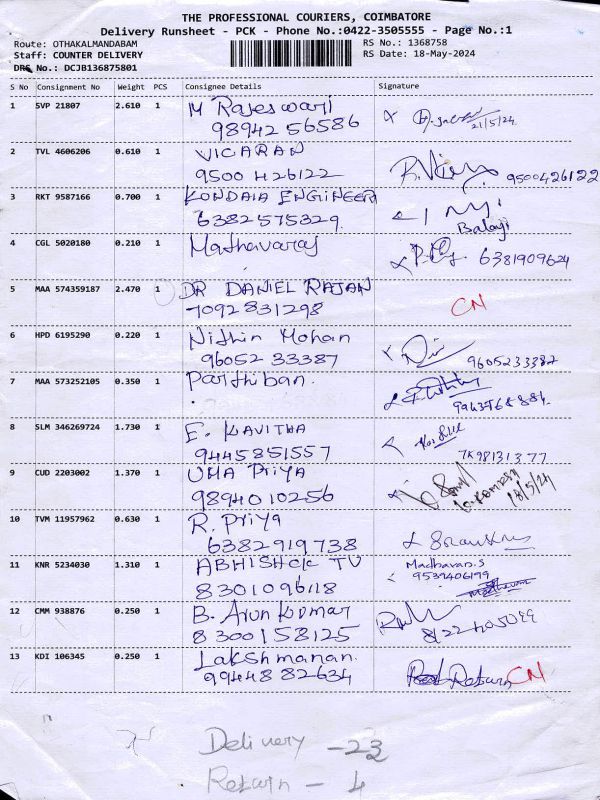 THE PROFESSIONAL COURIERS, COIMBATORE
Delivery Runsheet - PCK - Phone No.:0422-3505555 - Page No.:1
Route: OTHAKALMANDABAM RS No.: 1368758
Staff: COUNTER DELIVERY RS Date: 18-May-2024
DRS No.: DCJB136875801
S No Consignment No Weight PCS Consignee Details Signature
1 SVP 21807 2.610 1 M Rajeswari
98942 56586 21/5/24
2 TVL 4606206 0.610 1 VIGARAN
9500 426122 9500426122
3 RKT 9587166 0.700 1 KONDAIA ENGINEER
6382575329 Balaji
4 CGL 5020180 0.210 1 Mathavaraj 6381909624
5 MAA 574359187 2.470 1 DR DANIEL RAJAN
7092831298 CN
6 HPD 6195290 0.220 1 Nithin Mohan
96052 33387 9605233387
7 MAA 573252105 0.350 1 Parthiban.
8 SLM 346269724 1.730 1 E. KAVITHA
9445851557
9 CUD 2203002 1.370 1 UMA Priya
9894010256 18/5/24
10 TVM 11957962 0.630 1 R. Priya
6382919738
11 KNR 5234030 1.310 1 ABHISHEK TV Madhavan.S
8301096118 9539406199
12 CMM 938876 0.250 1 B. Arun Kumar
8300158125
13 KDI 106345 0.250 1 Lakshmanan. Return CN
99448 82634
Delivery - 23
Return - 4